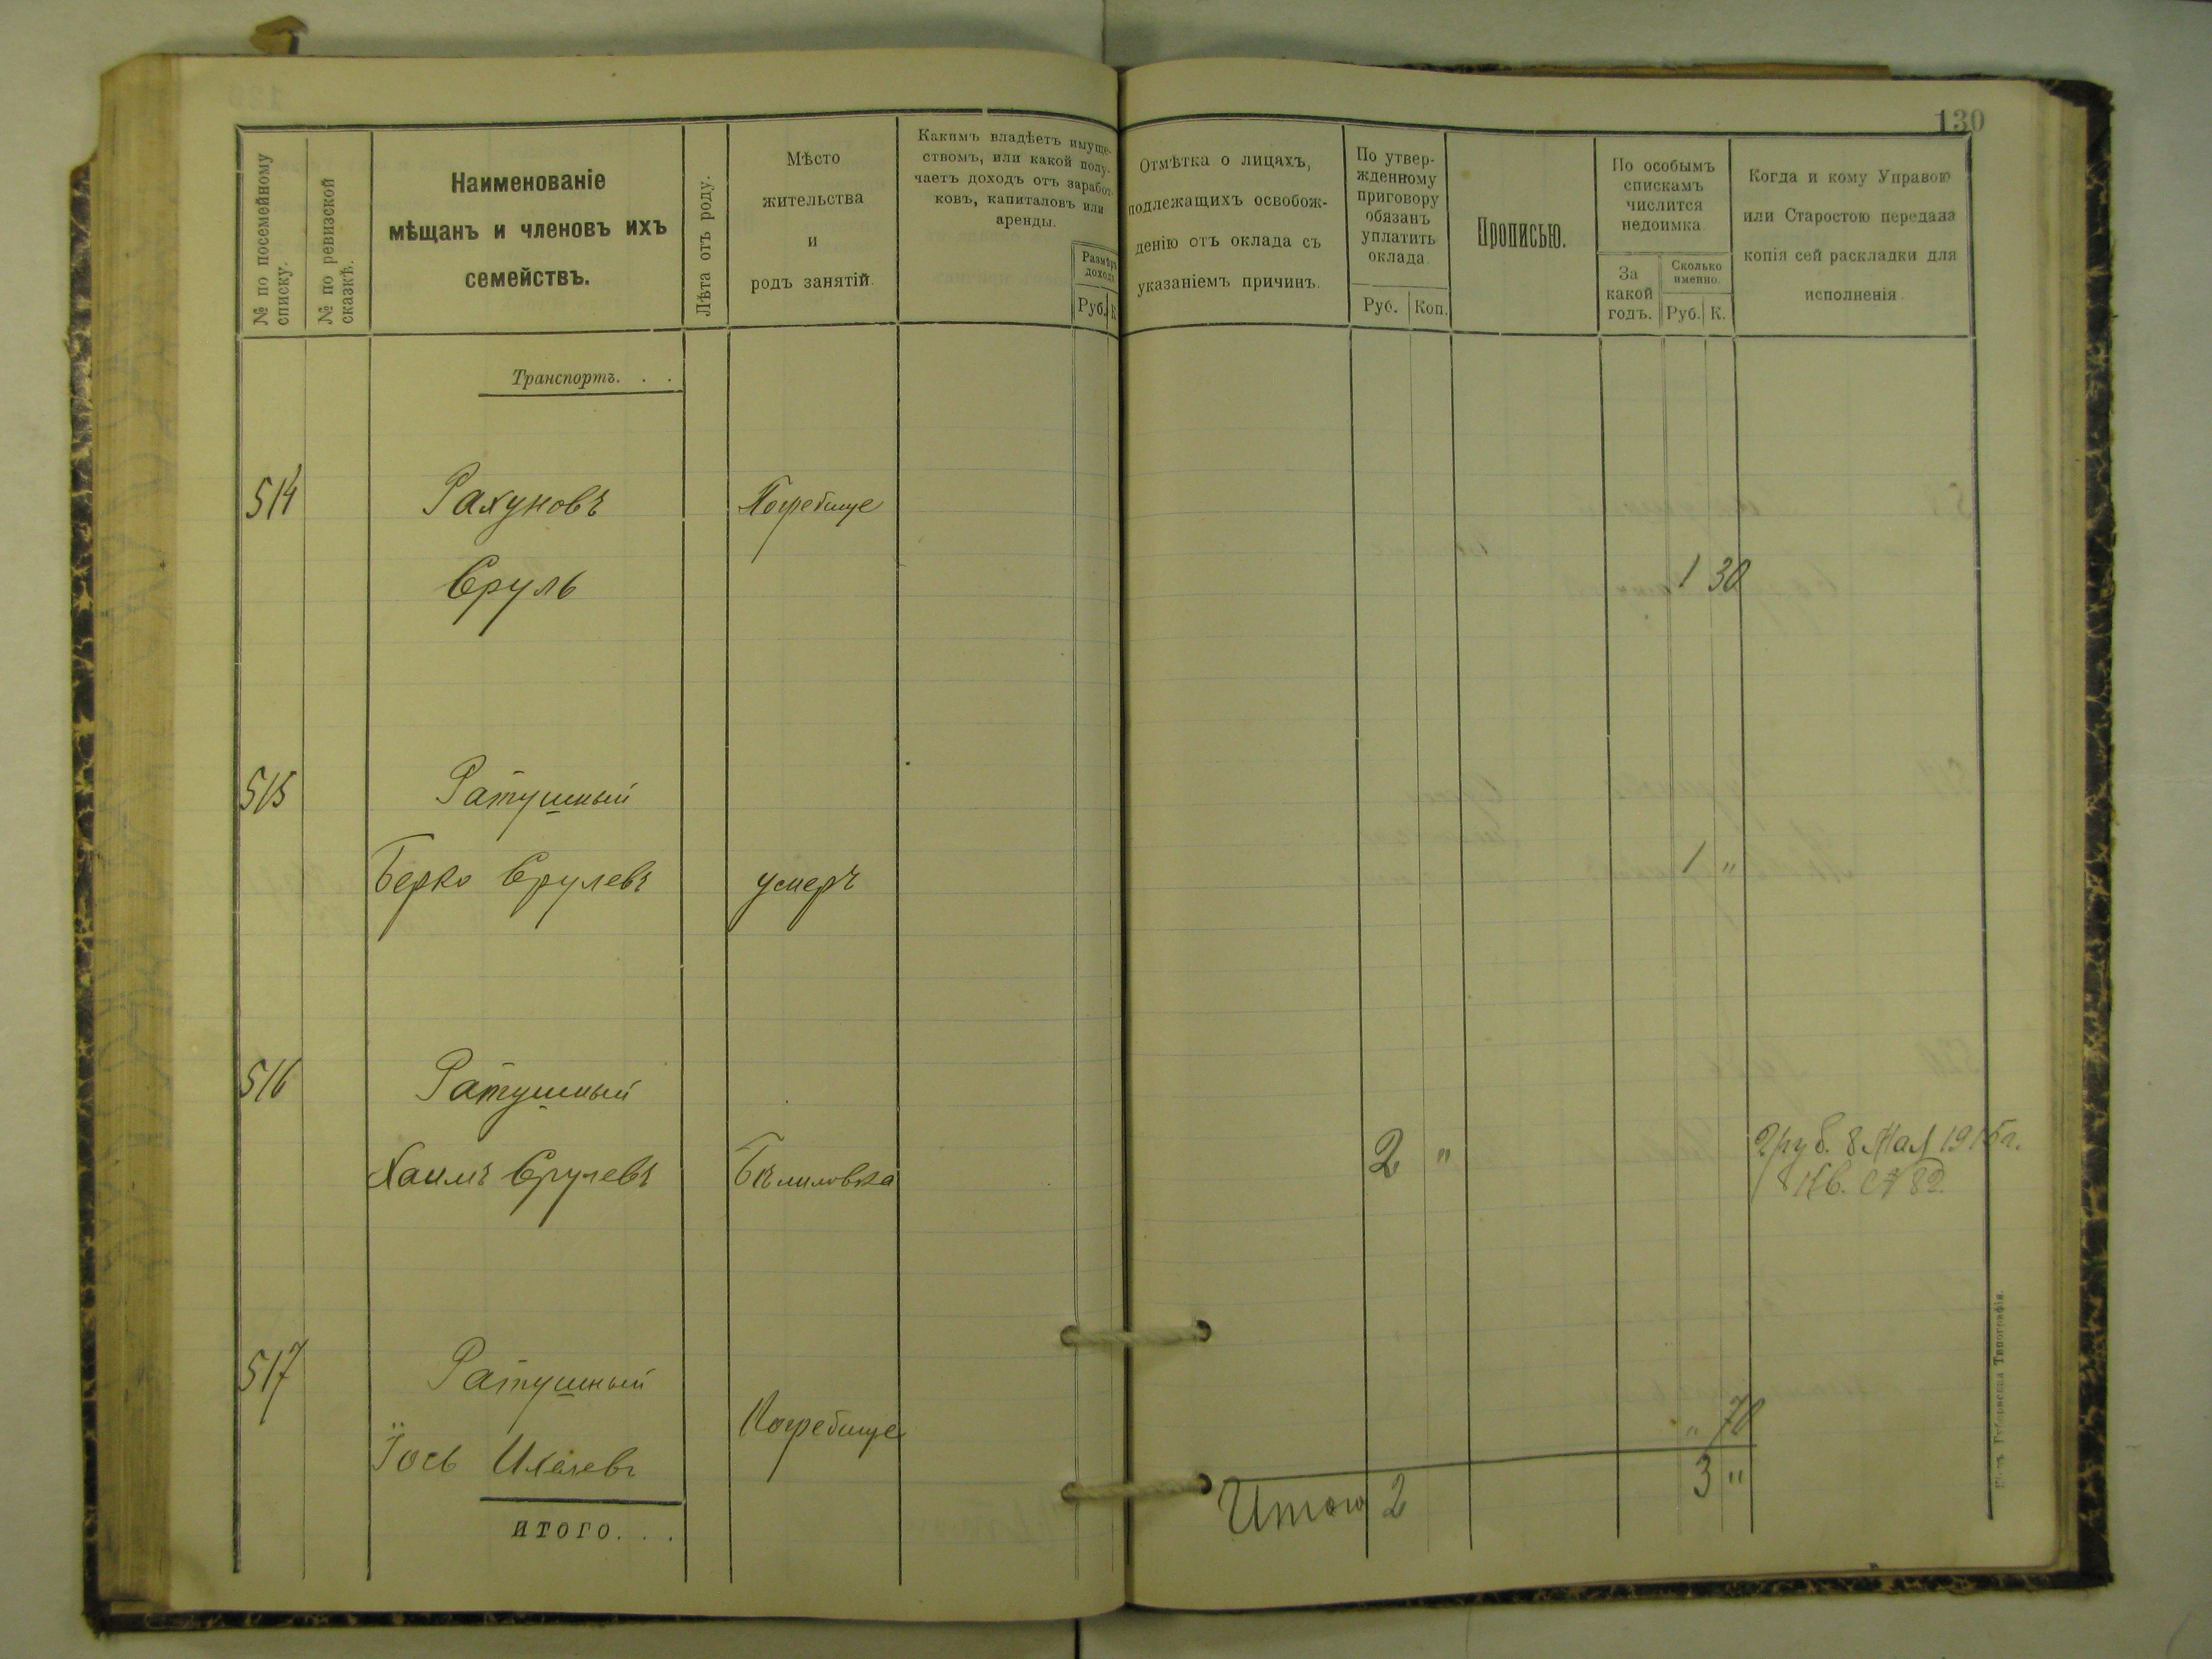 130
№ по посемейному списку.
№ по ревизской сказкѣ.
Наименованіе
мѣщанъ и членовъ ихъ
семействъ.
Лѣта отъ роду.
Мѣсто
жительства
и
родъ занятій.
Какимъ владѣетъ имуще-
ствомъ, или какой полу-
чаетъ доходъ отъ заработ-
ковъ, капиталовъ или
аренды.
Размѣръ
дохода
Руб. К
Отмѣтка о лицахъ,
подлежащихъ освобож-
денію отъ оклада съ
указаніемъ причинъ.
По утвер-
жденному
приговору
обязанъ
уплатить
оклада.
Руб. Коп.
Прописью.
По особымъ
спискамъ
числится
недоимка.
За
какой
годъ.
Сколько
именно.
Руб. К.
Когда и кому Управою
или Старостою передана
копія сей раскладки для
исполненія.
Транспортъ. . .
514 Рахуновъ Погребище
Сруль 1 30
515 Ратушный
Берко Срулевъ умеръ 1 "
516 Ратушный
Хаимъ Срулевъ Бѣлиловка 2 " 2 руб. 8 Мая 1915 г.
Кв. № 82.
517 Ратушный
Іось Погребище " 70
итого. . . Итого 2 3 "
Губернская Типографія.